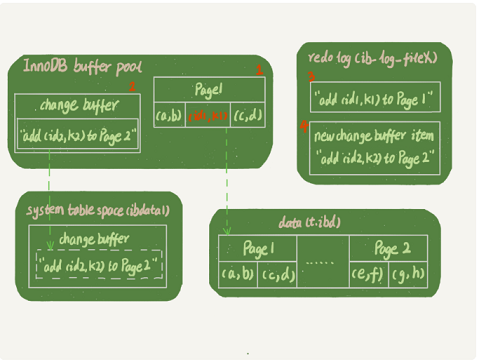 InnoDB buffer pool
2
change buffer
"add (id2, k2) to Page 2"
1
Page1
(a,b) (id1, k1) (c,d)
redo log (ib-log-fileX)
3
"add (id1, k1) to Page 1"
4
new change buffer item
"add (id2, k2) to Page 2"
system table space (ibdata1)
change buffer
"add (id2, k2) to Page 2"
data (t.ibd)
Page 1 ...... Page 2
(a, b) (c, d) (e, f) (g, h)